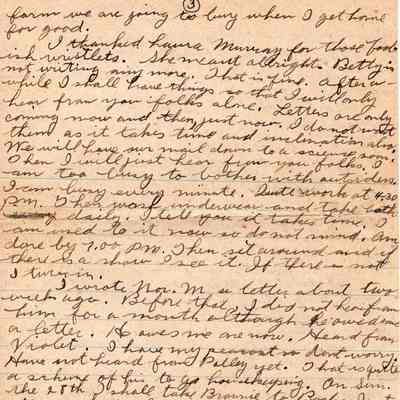 3
farm we are going to buy when I get home
for good.
I thanked Laura Murray for those fool-
ish wristlets. She meant allright. Betty is
not writing any more. That is fine. After a
while I shall have things so that I will only
hear from you folks alone. Letters are only
coming now and then just now. I do not want
them as it takes time and inclination also.
We will have our mail down to a science soon.
Then I will just hear from you folks. I
am too busy to bother with outsiders.
I am busy every minute. Quit work at 4:30
P.M. Then wash underwear and take bath
daily. I tell you it takes time. I
am used to it now so do not mind. Am
done by 7:00 P.M. Then set around and if
there is a show I see it. If there is not
I turn in.
I wrote Nov. M. a letter about two
weeks ago. Before that I did not hear from
him for a month although he owed me
a letter. He owes me one now. Heard from
Violet. I have my so dont worry.
Have not heard from yet. That is quite
a scheme of his to go housekeeping. On Sun.
the 28th I shall take Brownie to